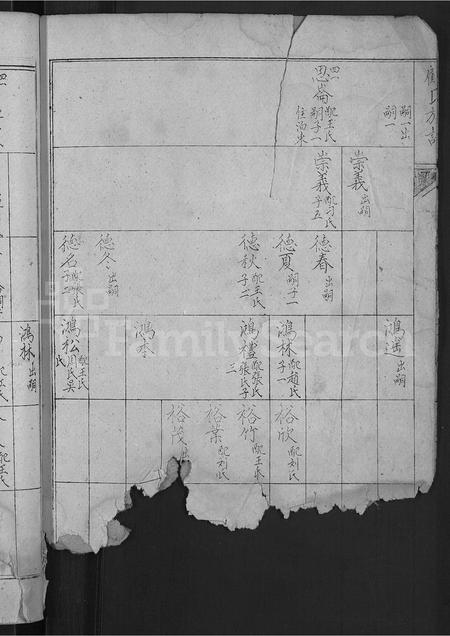 嗣一出
嗣一
四一
思崙
配王氏
嗣子一
住泊米
崇義 出嗣
崇義 配刁氏
子五
德春 出嗣
德夏 嗣子一
德秋 配王氏
子二
德冬 出嗣
德名
鴻逵 出嗣
鴻林 配趙氏
子一
鴻禮 配張氏
張氏子
三
鴻本
鴻松 配王氏
氏
裕欣 配刘氏
裕竹 配王氏
裕業 配刘氏
裕茂
鴻林 出嗣
FamilySearch